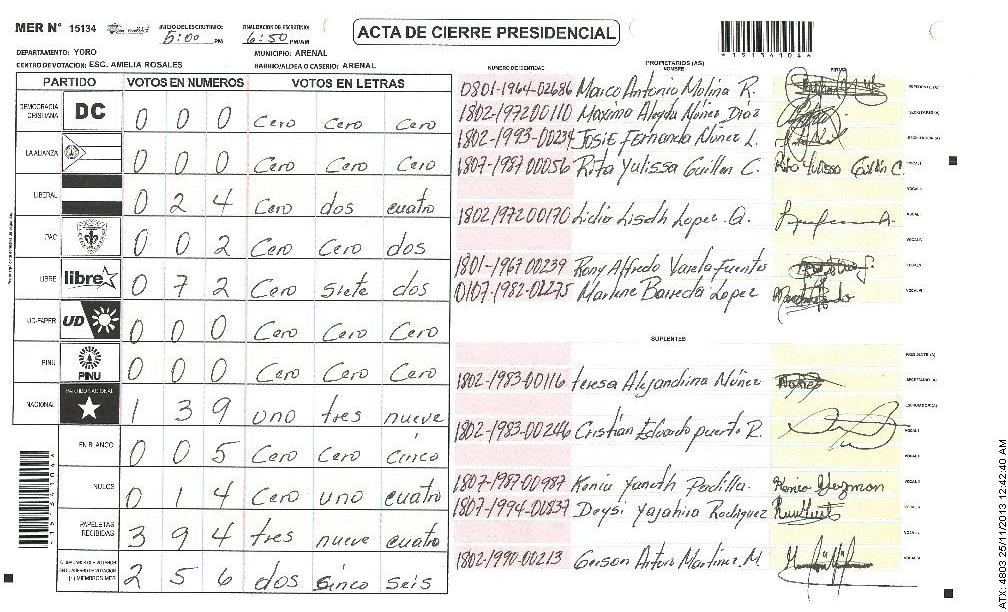 MER N° 15134
INICIO DEL ESCRUTINIO: 5:00 PM
FINALIZACION DE ESCRUTINIO: 6:50 PM/AM
ACTA DE CIERRE PRESIDENCIAL
DEPARTAMENTO: YORO
MUNICIPIO: ARENAL
CENTRO DE VOTACION: ESC. AMELIA ROSALES
BARRIO/ALDEA O CASERIO: ARENAL
*15134104*
PARTIDO VOTOS EN NUMEROS VOTOS EN LETRAS
DEMOCRACIA CRISTIANA DC 0 0 0 Cero Cero Cero
LA ALIANZA 0 0 0 Cero Cero Cero
LIBERAL 0 2 4 Cero dos cuatro
PAC 0 0 2 Cero Cero dos
LIBRE libre 0 7 2 Cero Siete dos
UD-FAPER UD 0 0 0 Cero Cero Cero
PINU PINU 0 0 0 Cero Cero Cero
NACIONAL PARTIDO NACIONAL 1 3 9 uno tres nueve
EN BLANCO 0 0 5 Cero Cero Cinco
NULOS 0 1 4 Cero uno cuatro
PAPELETAS RECIBIDAS 3 9 4 tres nueve cuatro
(+) MIEMBROS MER 2 5 6 dos Cinco seis
PROPIETARIOS (AS)
NUMERO DE IDENTIDAD NOMBRE FIRMA
0801-1964-02686 Marco Antonio Molina R. PRESIDENTE (A)
1802-197200110 Maxima Aleyda Núñez Diaz SECRETARIO (A)
1802-1993-00234 JOSIE Fernanda Núñez L. ESCRUTADOR (A)
1807-198700056 Rita Yulissa Guillen C. Rita Yulissa Guillén C. VOCAL I
VOCAL II
1802197200170 Lidia Liseth Lopez. A. VOCAL III
VOCAL IV
1801-1967-00239 Rony Alfredo Varela Fuentes VOCAL V
0107-1982-01275 Marlene Barreda Lopez VOCAL VI
SUPLENTES
PRESIDENTE (A)
1802-1983-00116 teresa Alejandrina Núñez SECRETARIO (A)
ESCRUTADOR (A)
1802-1983-00246 Cristian Eduardo puerto R. VOCAL I
VOCAL II
1807-1987-00987 Kenia Yaneth Padilla.
1807-1994-00837 Deysi Yajahira Rodriguez
1802-1990-00213 Gerson Arturo Martinez. M.
*15134104*
ATX: 4803 25/11/2013 12:42:40 AM